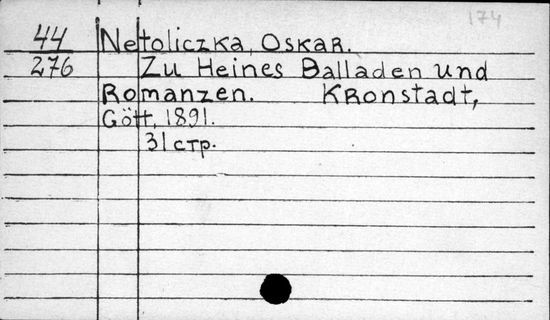 174
44 Netoliczka, Oskar.
276 Zu Heines Balladen und
Romanzen. Kronstadt,
Gött, 1891.
31 стр.